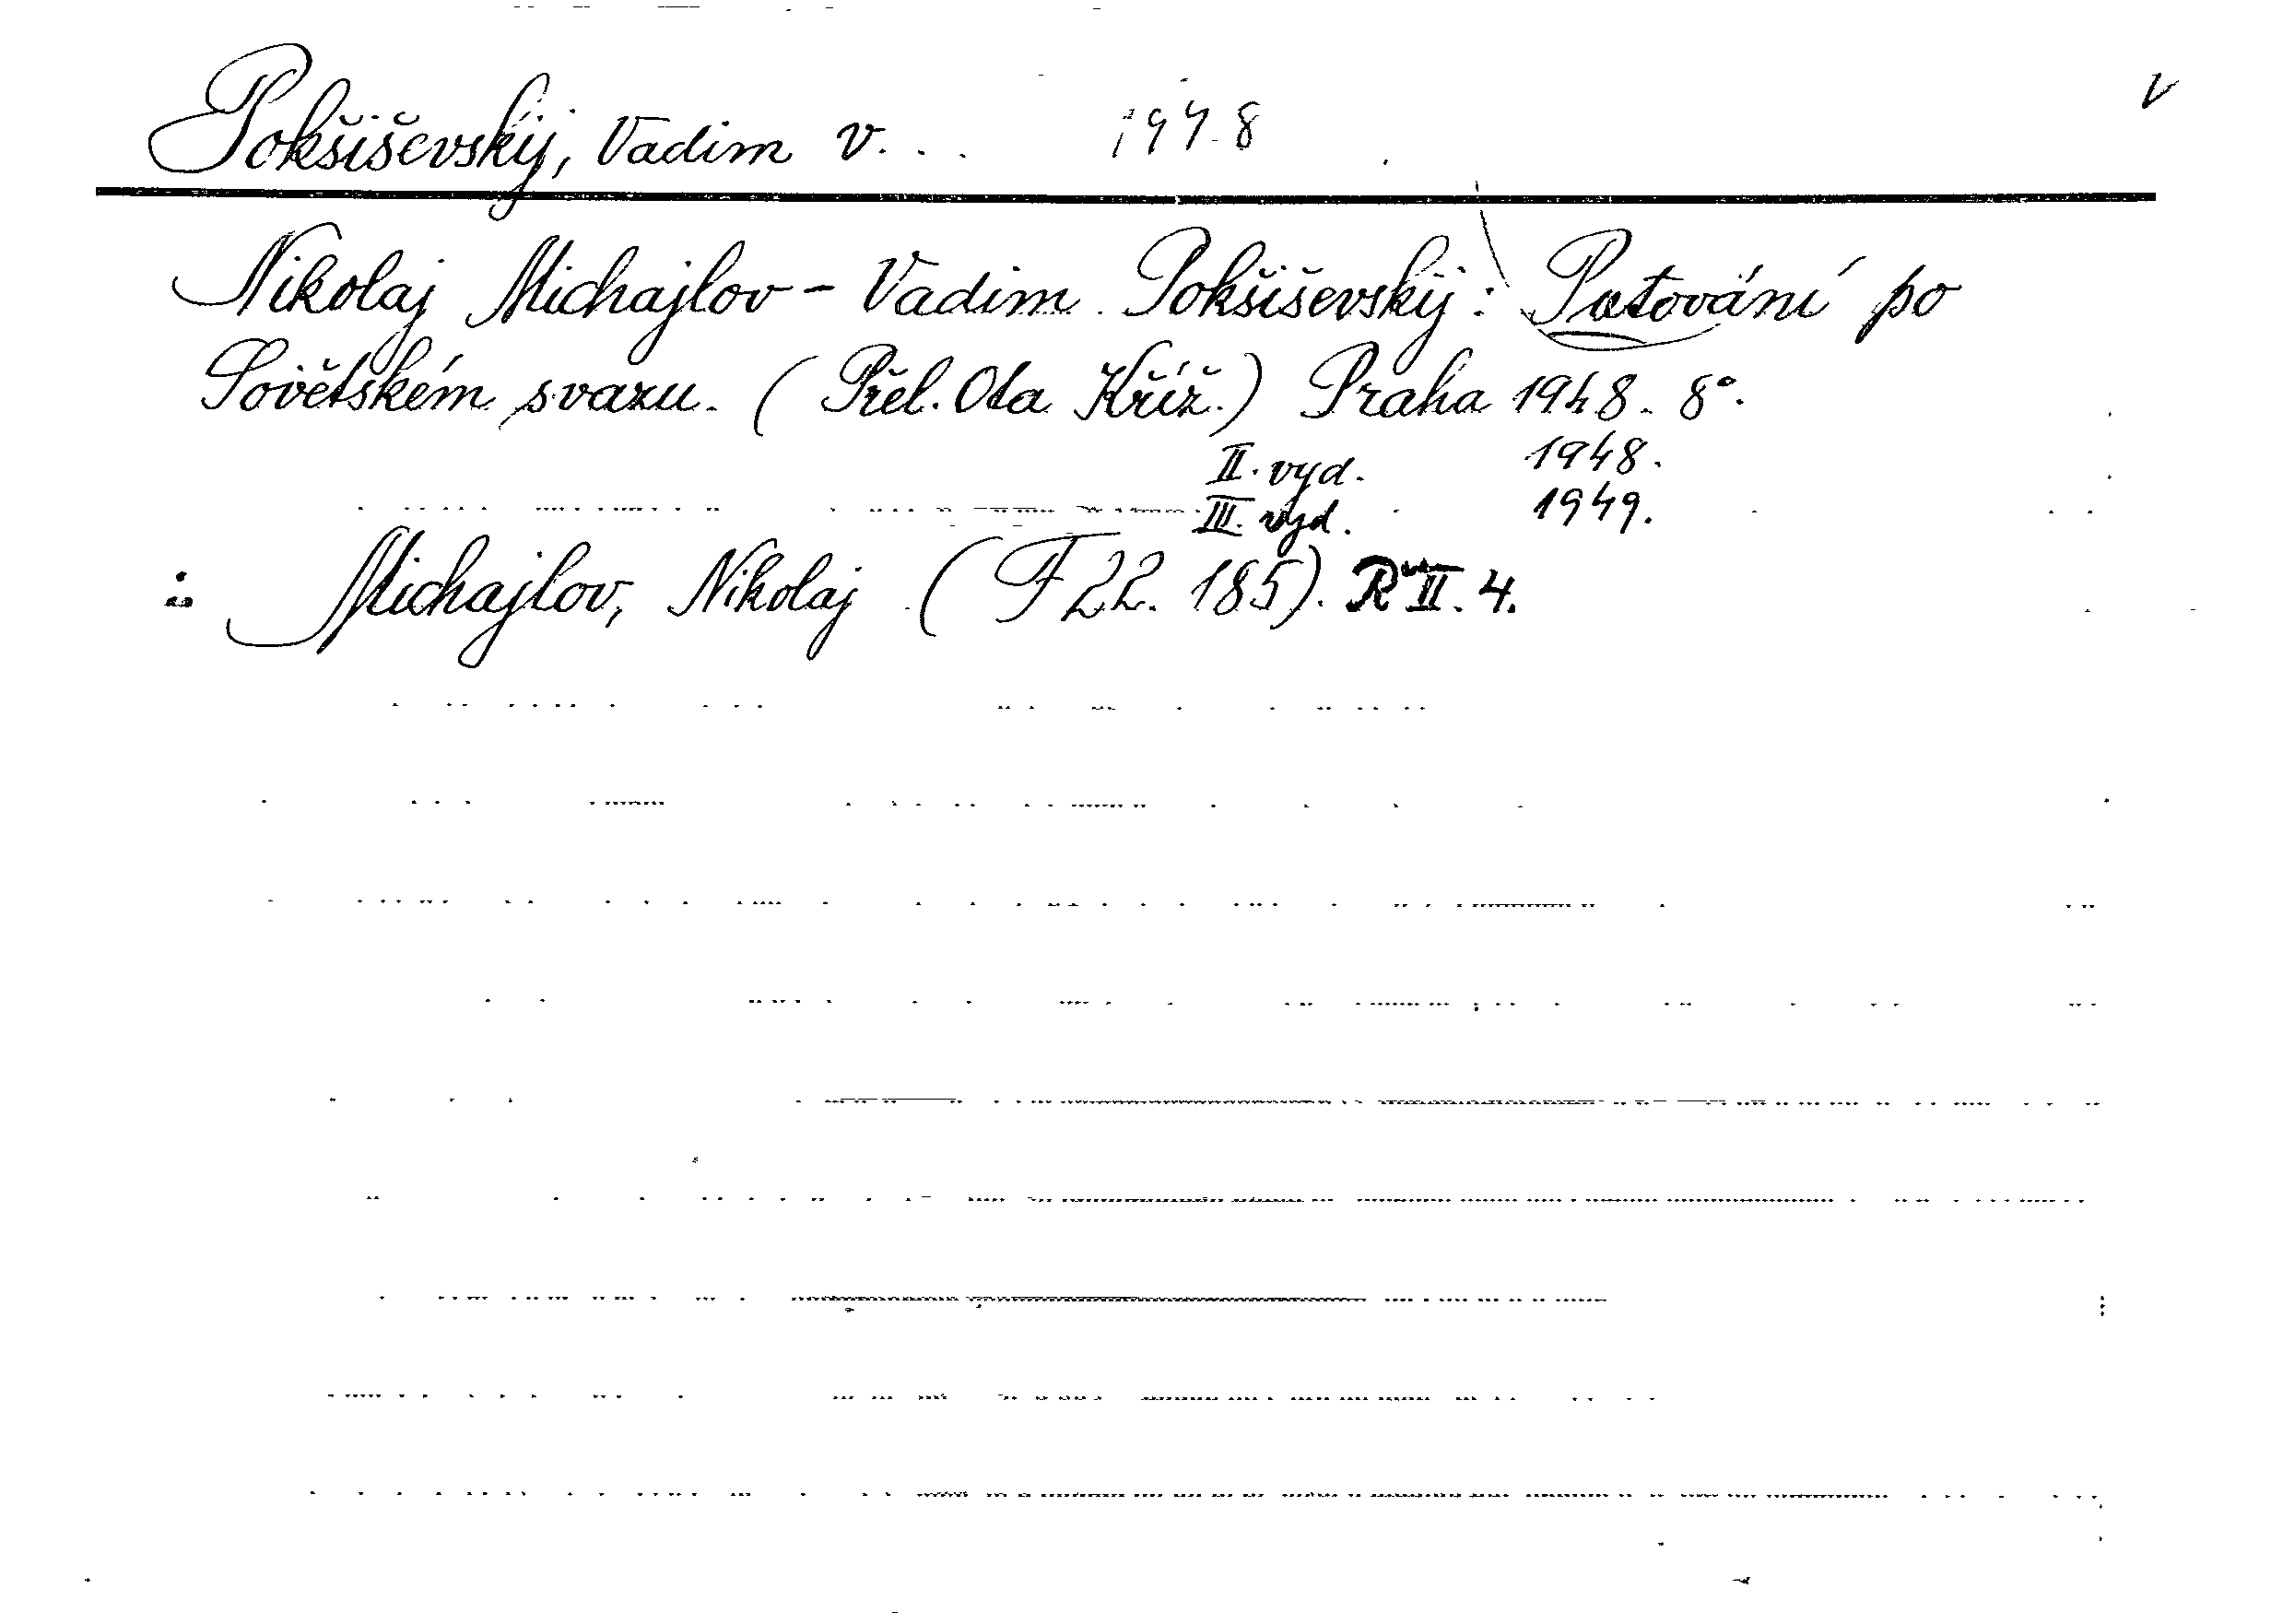 Pokšiševskij, Vadim V... 1948 V
Nikolaj Michajlov - Vadim Pokšiševskij: Putování po
Sovětském svazu. (Přel. Ota Kříž.) Praha 1948. 8°.
II. vyd. 1948.
III. vyd. 1949.
∴ Michajlov, Nikolaj (F 22. 185). R II. 4.